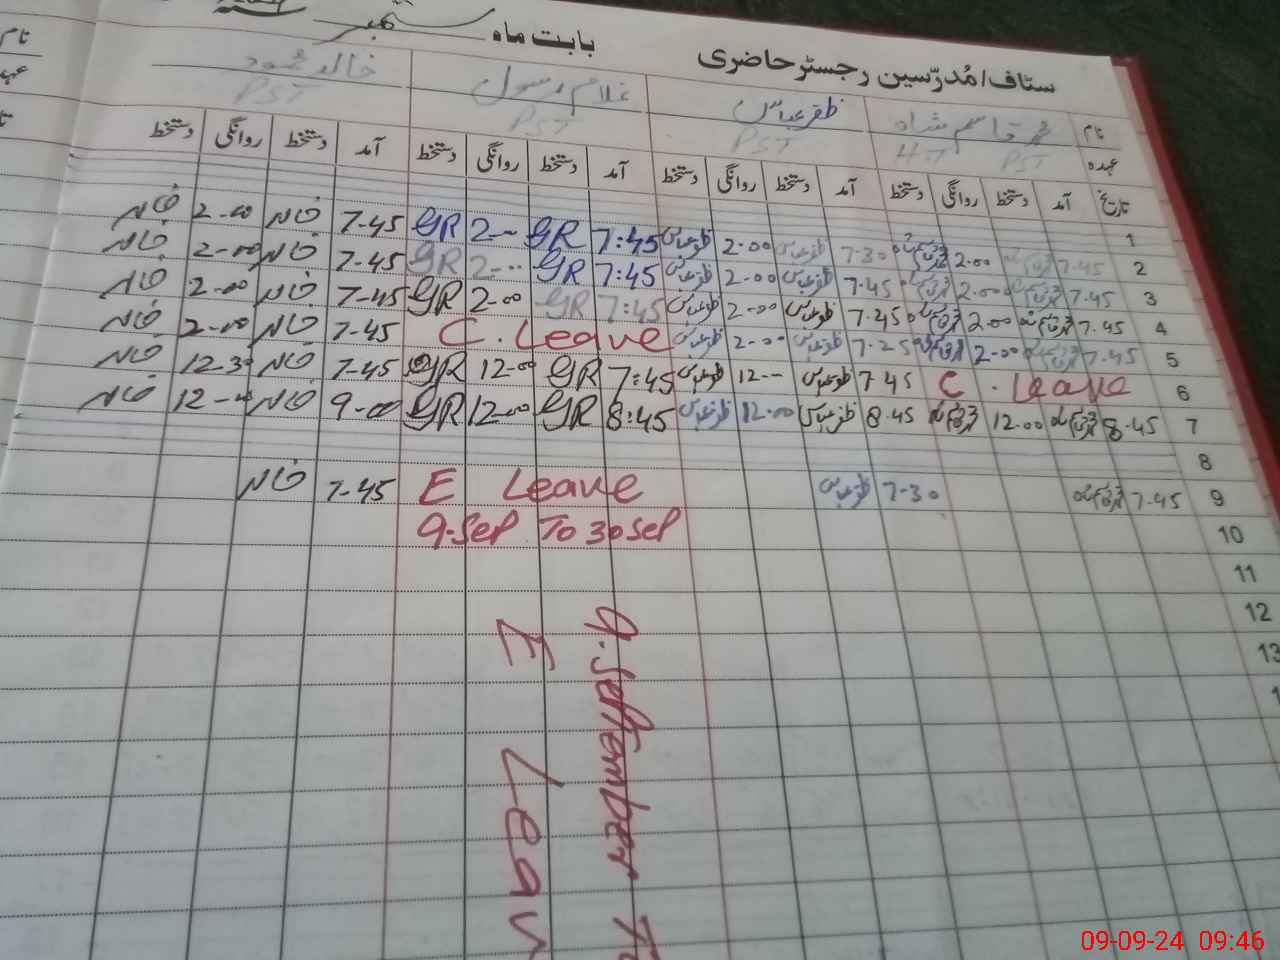 سٹاف / مُدرّسین رجسٹر حاضری بابت ماہ ستمبر
نام محمد قاسم شاہ ظفر عباس غلام رسول خالد محمود
عہدہ PST HT PST PST PST
تاریخ آمد دستخط روانگی دستخط آمد دستخط روانگی دستخط آمد دستخط روانگی دستخط آمد دستخط روانگی دستخط
1 7.45 2.00 7.30 ظفر عباس 2.00 ظفر عباس 7:45 GR 2-- GR 7-45 خالد 2-00 خالد
2 7.45 2.00 7.45 ظفر عباس 2-00 ظفر عباس 7:45 GR 2-- GR 7-45 خالد 2-00 خالد
3 7.45 2.00 7.45 ظفر عباس 2-00 ظفر عباس 7:45 GR 2-00 GR 7-45 خالد 2-00 خالد
4 7.45 2-00 7.25 ظفر عباس 2-00 ظفر عباس C. Leave 7-45 خالد 2-00 خالد
5 C. Leave 7.45 ظفر عباس 12-- ظفر عباس 7:45 GR 12-00 GR 7-45 خالد 12-30 خالد
6 8.45 12.00 8.45 ظفر عباس 12.00 ظفر عباس 8:45 GR 12-00 GR 9-00 خالد 12-00 خالد
7
8
9 7.45 7-30 ظفر عباس E Leave 7-45 خالد
10 9.Sep To 30 Sep
11
12
13
9. September To
E Leav
09-09-24 09:46